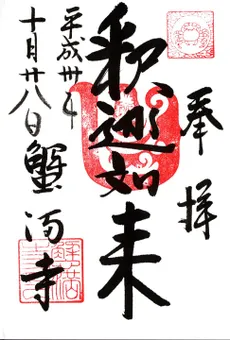 奉拝
釈迦如来
平成卅年
十月廿八日 蟹満寺